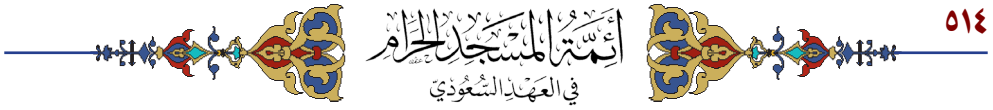 ٥١٤
أَئِمَّةُ المَسْجِدِ الحَرَامِ
فِي العَهْدِ السُّعُودِيّ